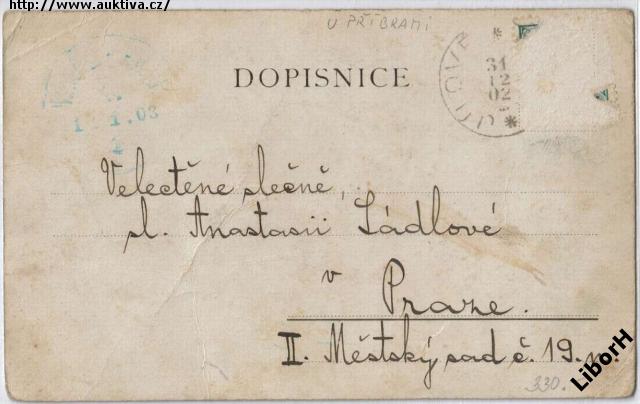 http://www.auktiva.cz/
U PŘÍBRAMI
DOPISNICE
31
12
02
1.03
Velectěné slečně,
sl. Anastasii Sádlové
v
Praze.
II. Městský sad č. 19 n.
330.
LiborH